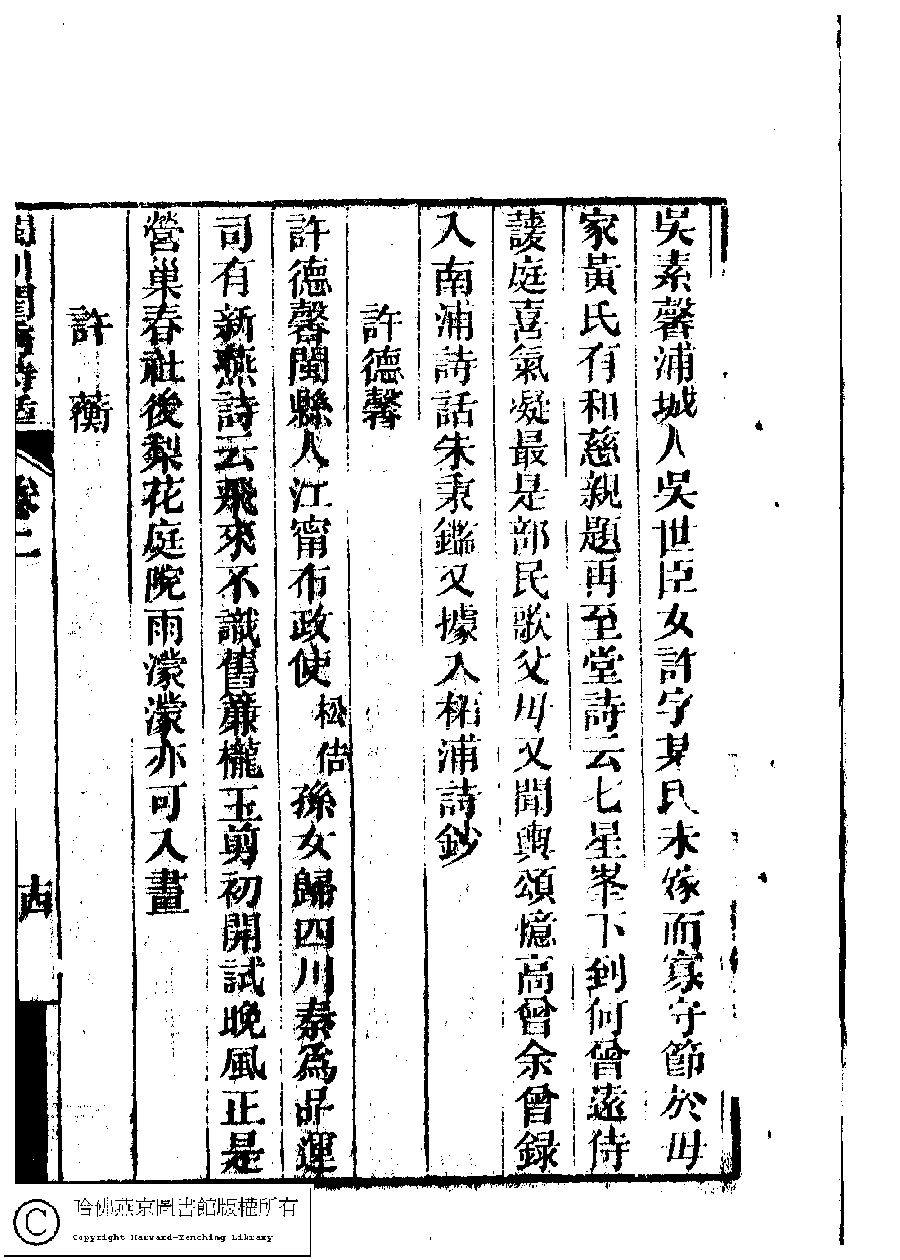 吳素馨浦城人吳世臣女許字某氏未嫁而寡守節於母
家黃氏有和慈親題再至堂詩云七星峯下到何曾遠侍
諼庭喜氣凝最是部民歌父母又聞輿頌憶高曾余曾録
入南浦詩話朱秉鑑又據入柘浦詩鈔
許德馨
許德馨閩縣人江甯布政使松佶孫女歸四川秦為品運
司有新燕詩云飛來不識舊簾櫳玉剪初開試晚風正是
營巢春社後梨花庭院雨濛濛亦可入畫
許蘅
閩川閨秀詩話 卷二 十四
哈佛燕京圖書館版權所有
Copyright Harvard-Yenching Library